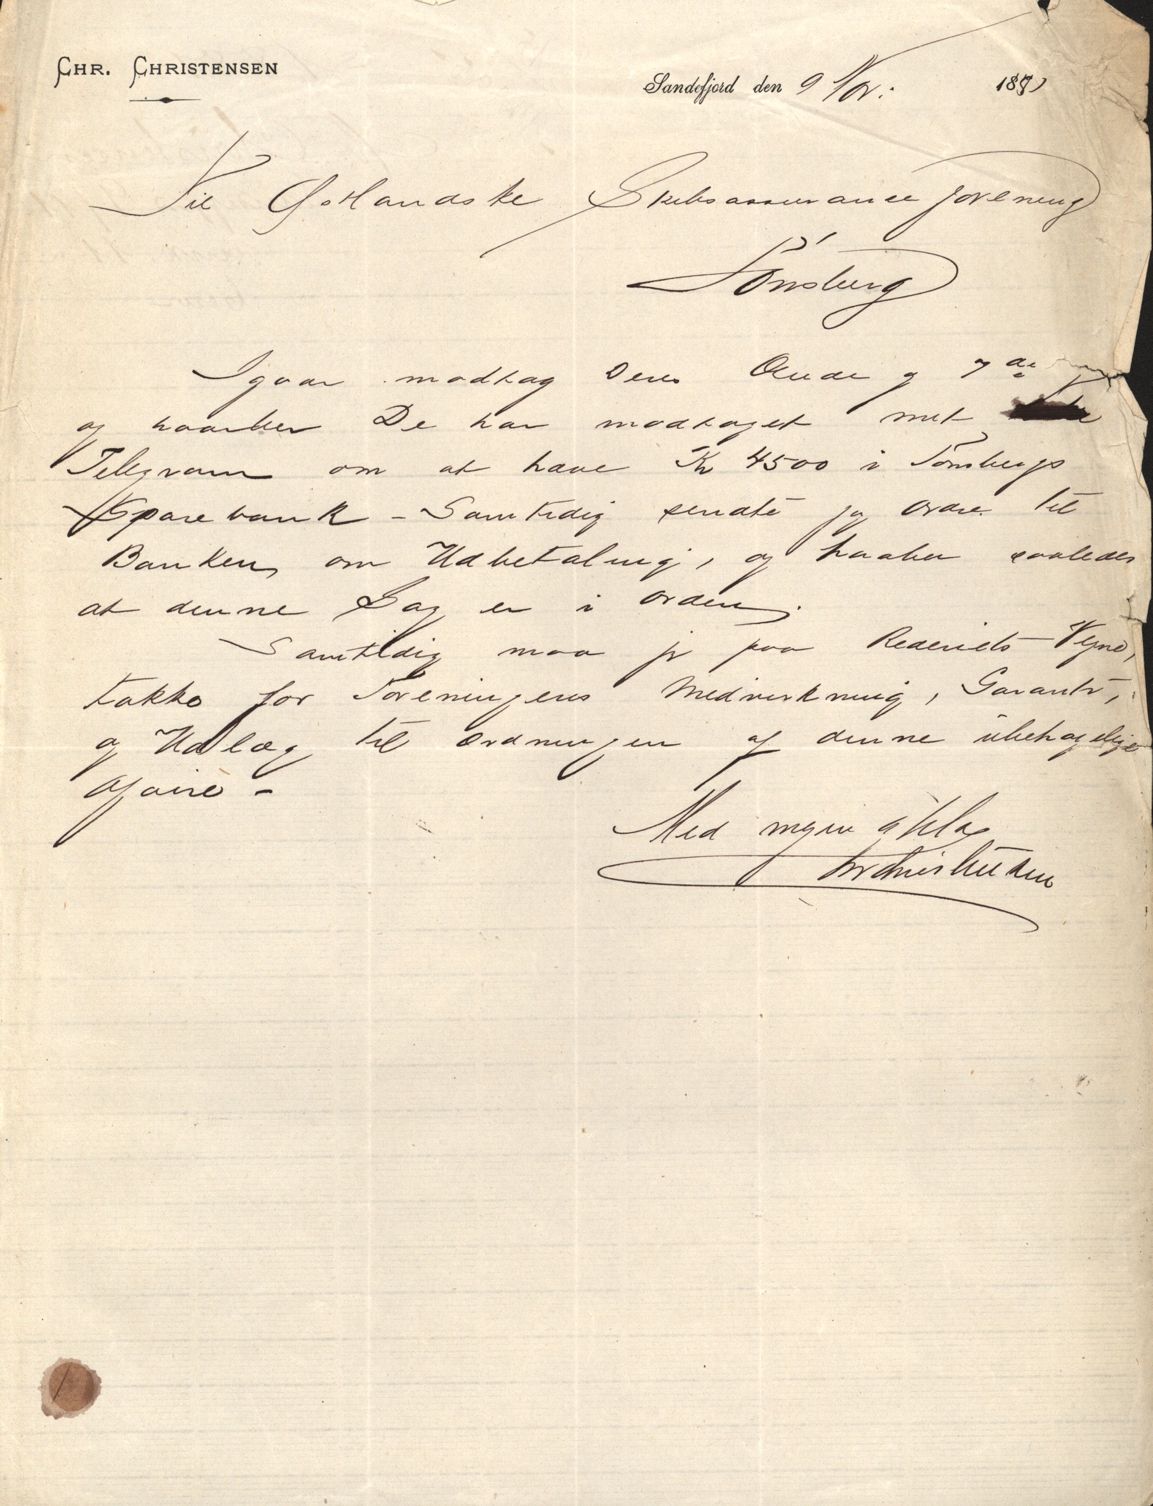 Chr. Christensen
Sandefjord den 9 Nov: 188
Til Østlandske Skibsassuranceforening
Tønsberg
Igaar modtog Deres Ærede af 7de
og haaber De har modtaget mit
Telegram om at have Kr 4500 i Tønsbergs
Sparebank – Samtidig sendte jeg Ordre til
Banken om Udbetaling, og haaber saaledes
at denne Sag er i Orden.
Samtidig maa jeg paa Rederiets Vegne,
takke for Foreningens Medvirkning, Garanti,
og Udlæg til Ordningen af denne ubehagelige
Afaire –
Med megen Agtelse
Chr Christensen